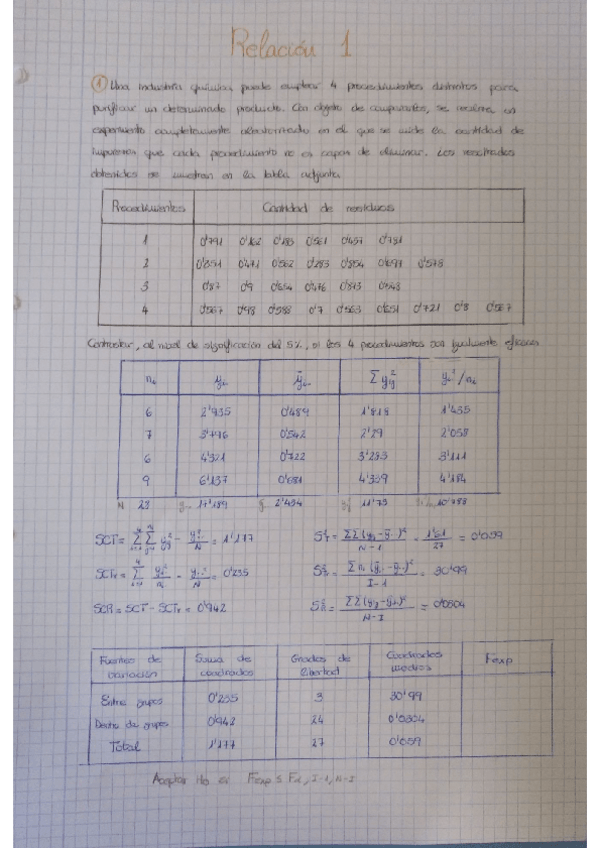 Relación 1
1 Una industria química puede emplear 4 procedimientos distintos para
purificar un determinado producto. Con objeto de compararlos, se realiza un
experimento completamente aleatorizado en el que se mide la cantidad de
impurezas que cada procedimiento no es capaz de eliminar. Los resultados
obtenidos se muestran en la tabla adjunta.
Procedimientos Cantidad de residuos
1 0'791 0'162 0'561 0'457
2 0'351 0'471 0'562 0'854 0'578
3 0'87 0'9 0'654 0'476 0'873
4 0'567 0'98 0'588 0'7 0'563 0'651 0'721 0'8 0'567
Contrastar, al nivel de significación del 5%, si los 4 procedimientos son igualmente eficaces
nᵢ yᵢ. ȳᵢ. Σ yᵢⱼ² yᵢ.²/nᵢ
6 2'935 0'489 1'818 1'435
7 3'796 0'542 2'29 2'058
6 4'321 0'722 3'293 3'111
9 6'137 0'681 4'329 4'184
N 28 17'189 2'434 11'73 10'788
SCT = = 1'177 = 0'059
SCTr = = 0'235 = 30'99
SCR = SCT - SCTr = 0'942 = 0'0304
Fuentes de variación Suma de cuadrados Grados de libertad Cuadrados medios Fexp
Entre grupos 0'235 3 30'99
Dentro de grupos 0'942 24 0'0304
Total 1'177 27 0'059
Aceptar H₀ si Fexp ≤ Fα, I-1, N-I